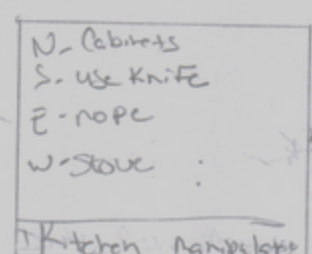 N- Cabinets
S- use Knife
E- nope
W- Stove :
Kitchen